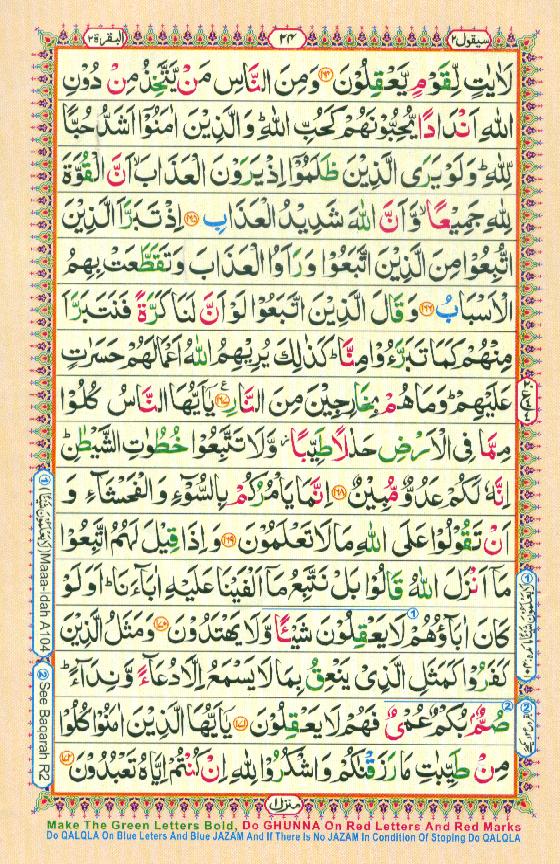 سيقول ٢
٢٤
البقرة ٢
لَاٰيٰتٍ لِّقَوْمٍ يَّعْقِلُوْنَ ﴿١٦٤﴾ وَمِنَ النَّاسِ مَنْ يَّتَّخِذُ مِنْ دُوْنِ
اللّٰهِ اَنْدَادًا يُّحِبُّوْنَهُمْ كَحُبِّ اللّٰهِ ؕ وَالَّذِيْنَ اٰمَنُوْٓا اَشَدُّ حُبًّا
لِّلّٰهِ ؕ وَلَوْ يَرَى الَّذِيْنَ ظَلَمُوْٓا اِذْ يَرَوْنَ الْعَذَابَ ۙ اَنَّ الْقُوَّةَ
لِلّٰهِ جَمِيْعًا ۙ وَّاَنَّ اللّٰهَ شَدِيْدُ الْعَذَابِ ﴿١٦٥﴾ اِذْ تَبَرَّاَ الَّذِيْنَ
اتُّبِعُوْا مِنَ الَّذِيْنَ اتَّبَعُوْا وَرَاَوُا الْعَذَابَ وَتَقَطَّعَتْ بِهِمُ
الْاَسْبَابُ ﴿١٦٦﴾ وَقَالَ الَّذِيْنَ اتَّبَعُوْا لَوْ اَنَّ لَنَا كَرَّةً فَنَتَبَرَّاَ
مِنْهُمْ كَمَا تَبَرَّءُوْا مِنَّا ؕ كَذٰلِكَ يُرِيْهِمُ اللّٰهُ اَعْمَالَهُمْ حَسَرٰتٍ
عَلَيْهِمْ ؕ وَمَا هُمْ بِخٰرِجِيْنَ مِنَ النَّارِ ﴿١٦٧﴾ يٰٓاَيُّهَا النَّاسُ كُلُوْا
مِمَّا فِى الْاَرْضِ حَلٰلًا طَيِّبًا ۖ وَّلَا تَتَّبِعُوْا خُطُوٰتِ الشَّيْطٰنِ ؕ
اِنَّهٗ لَكُمْ عَدُوٌّ مُّبِيْنٌ ﴿١٦٨﴾ اِنَّمَا يَاْمُرُكُمْ بِالسُّوْٓءِ وَالْفَحْشَآءِ وَ
اَنْ تَقُوْلُوْا عَلَى اللّٰهِ مَا لَا تَعْلَمُوْنَ ﴿١٦٩﴾ وَاِذَا قِيْلَ لَهُمُ اتَّبِعُوْا
مَآ اَنْزَلَ اللّٰهُ قَالُوْا بَلْ نَتَّبِعُ مَآ اَلْفَيْنَا عَلَيْهِ اٰبَآءَنَا ؕ اَوَلَوْ
كَانَ اٰبَآؤُهُمْ لَا يَعْقِلُوْنَ شَيْـًٔا وَّلَا يَهْتَدُوْنَ ﴿١٧٠﴾ وَمَثَلُ الَّذِيْنَ
كَفَرُوْا كَمَثَلِ الَّذِيْ يَنْعِقُ بِمَا لَا يَسْمَعُ اِلَّا دُعَآءً وَّنِدَآءً ؕ
صُمٌّۢ بُكْمٌ عُمْيٌ فَهُمْ لَا يَعْقِلُوْنَ ﴿١٧١﴾ يٰٓاَيُّهَا الَّذِيْنَ اٰمَنُوْا كُلُوْا
مِنْ طَيِّبٰتِ مَا رَزَقْنٰكُمْ وَاشْكُرُوْا لِلّٰهِ اِنْ كُنْتُمْ اِيَّاهُ تَعْبُدُوْنَ ﴿١٧٢﴾
منزل ١
① Maaa-idah A104
② See Baqarah R2
Make The Green Letters Bold, Do GHUNNA On Red Letters And Red Marks
Do QALQLA On Blue Leters And Blue JAZAM And If There Is No JAZAM In Condition Of Stoping Do QALQLA